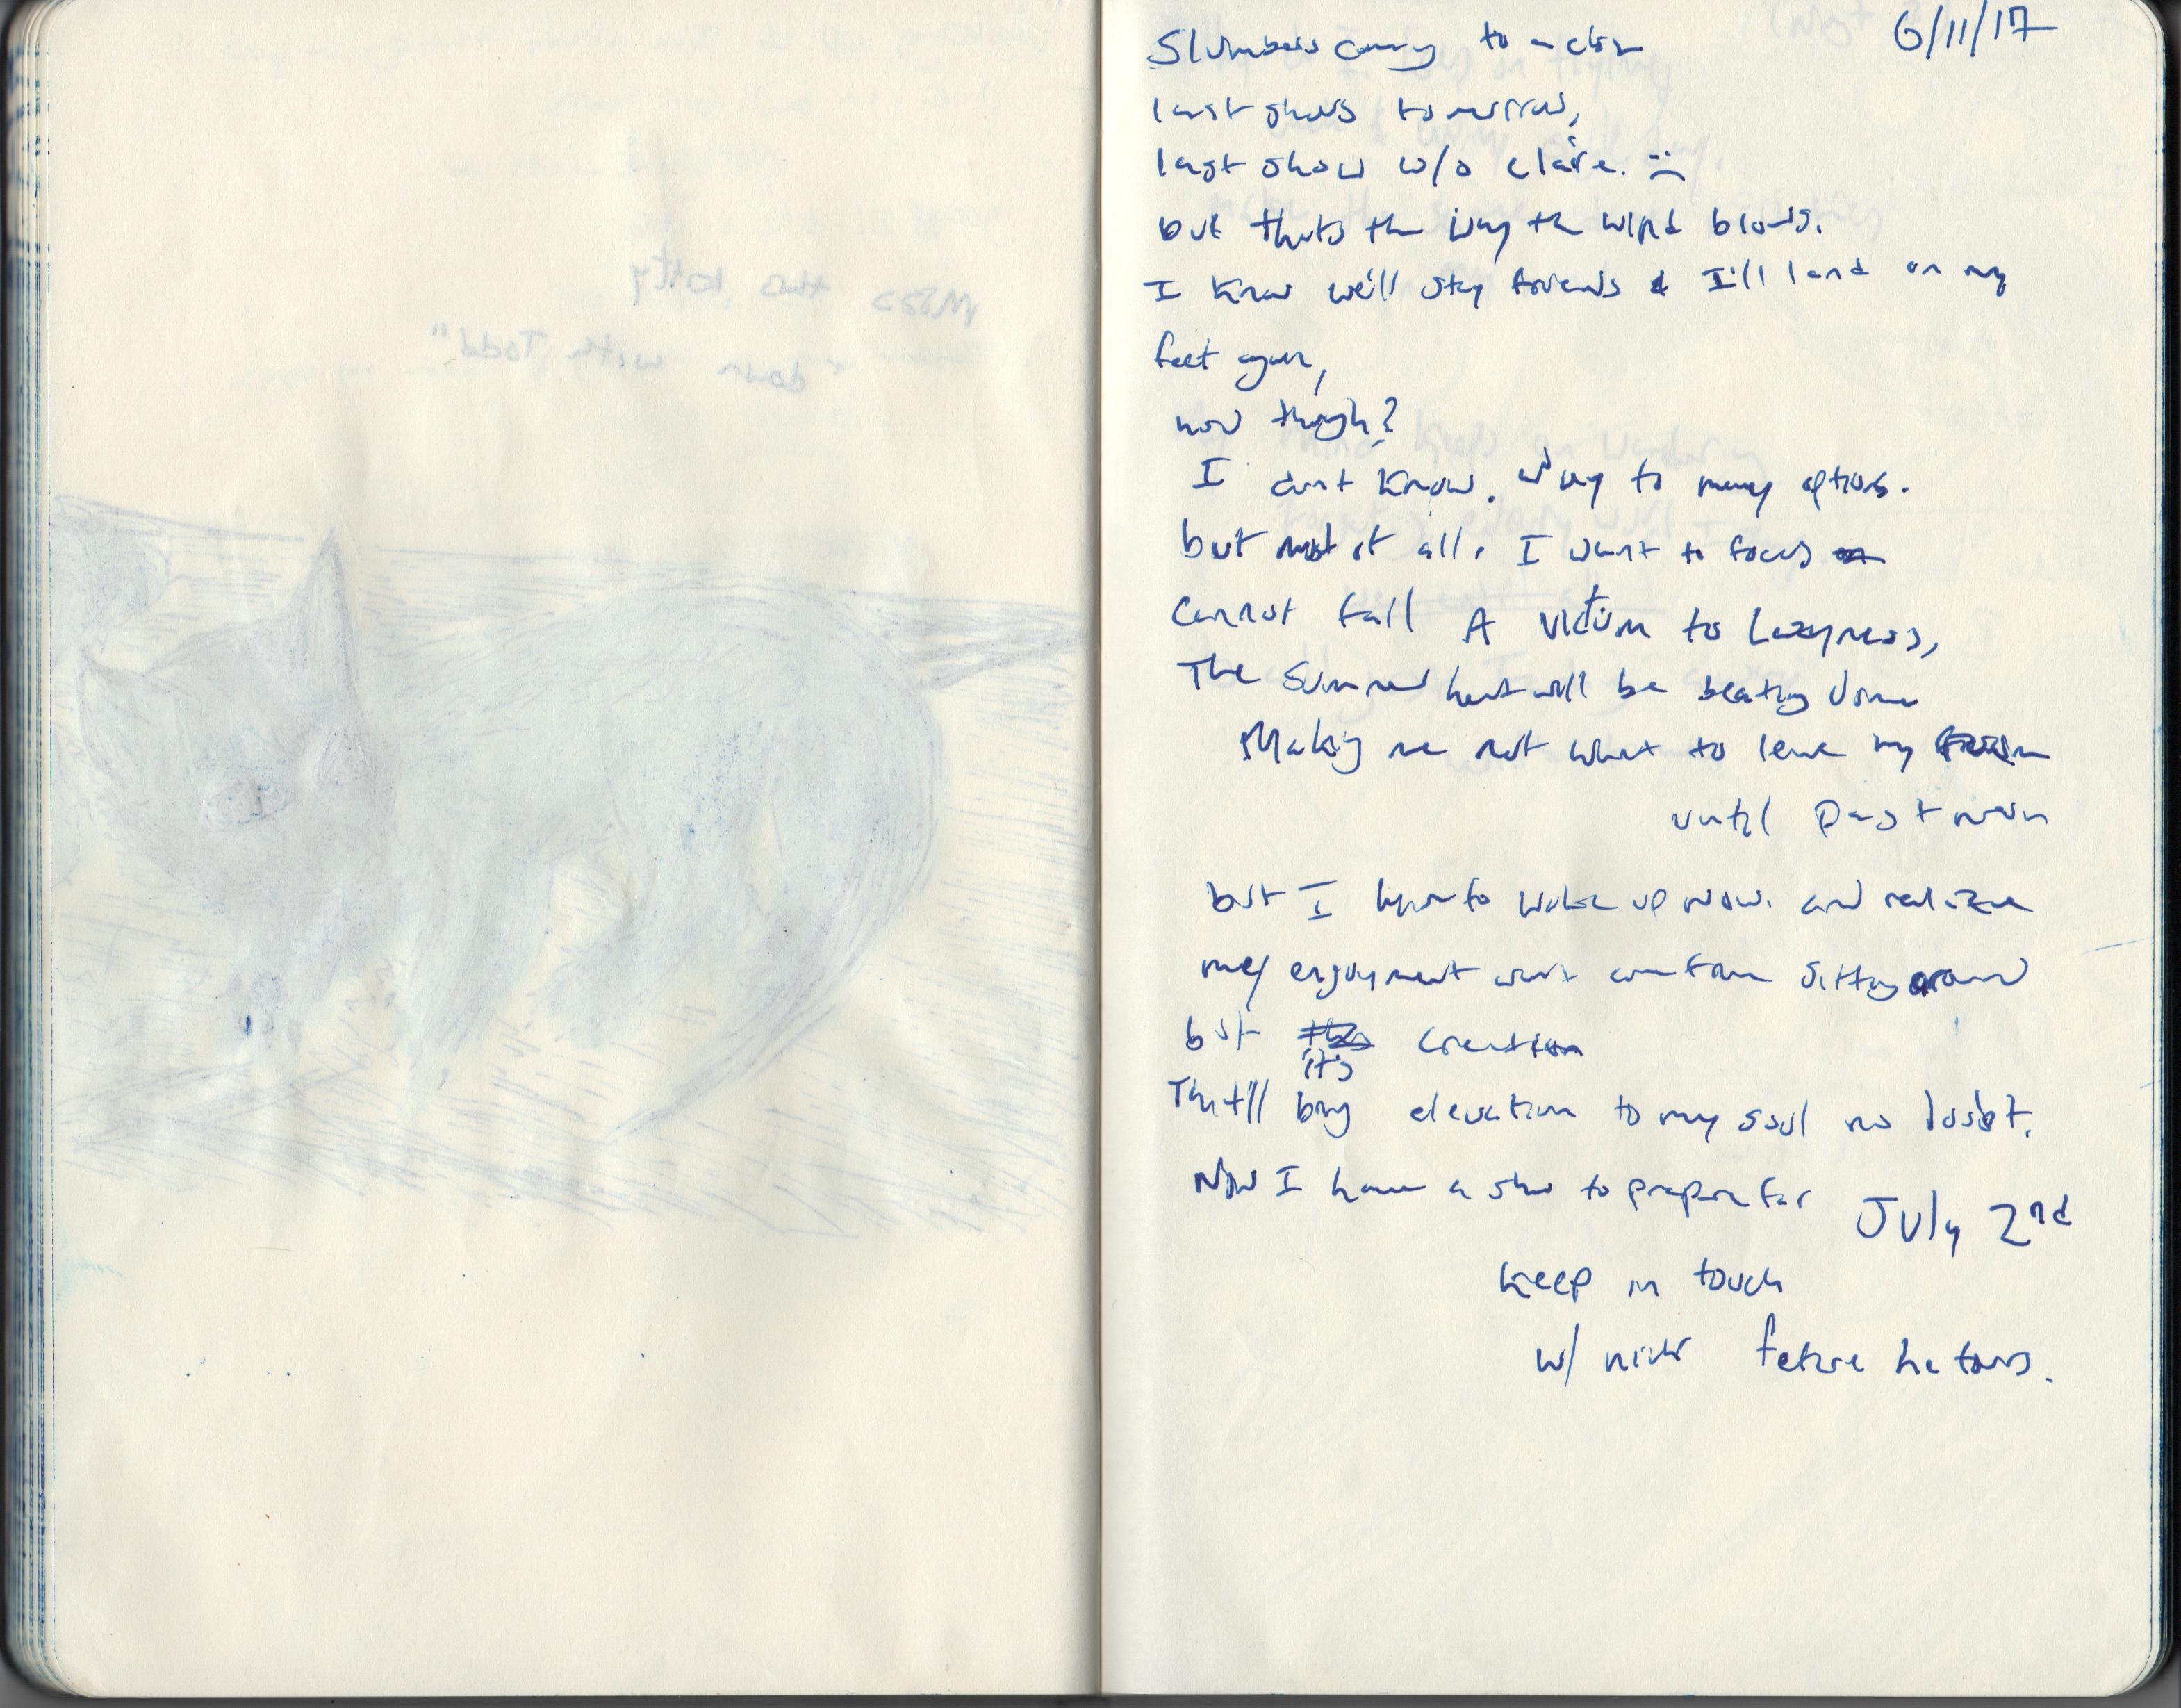 6/11/17
Slumbers comng to a close
last shows tomorrow,
last show w/o claire. :(
but thats the way the wind blows.
I know we'll stay friends & I'll land on my
feet again,
how though?
I dont know. Way to many options.
but most of all. I want to focus
Cannot fall A victim to Lazyness,
The Summer heat will be beating down
Making me not want to leave my room
until past noon
but I have to wake up now. and realize
my enjoyment wont come from sitting around
but it's creation
That'll bring elevation to my soul no doubt.
Now I have a show to prepare for July 2nd
Keep in touch
w/ future
Miss this kitty
"down with Todd"